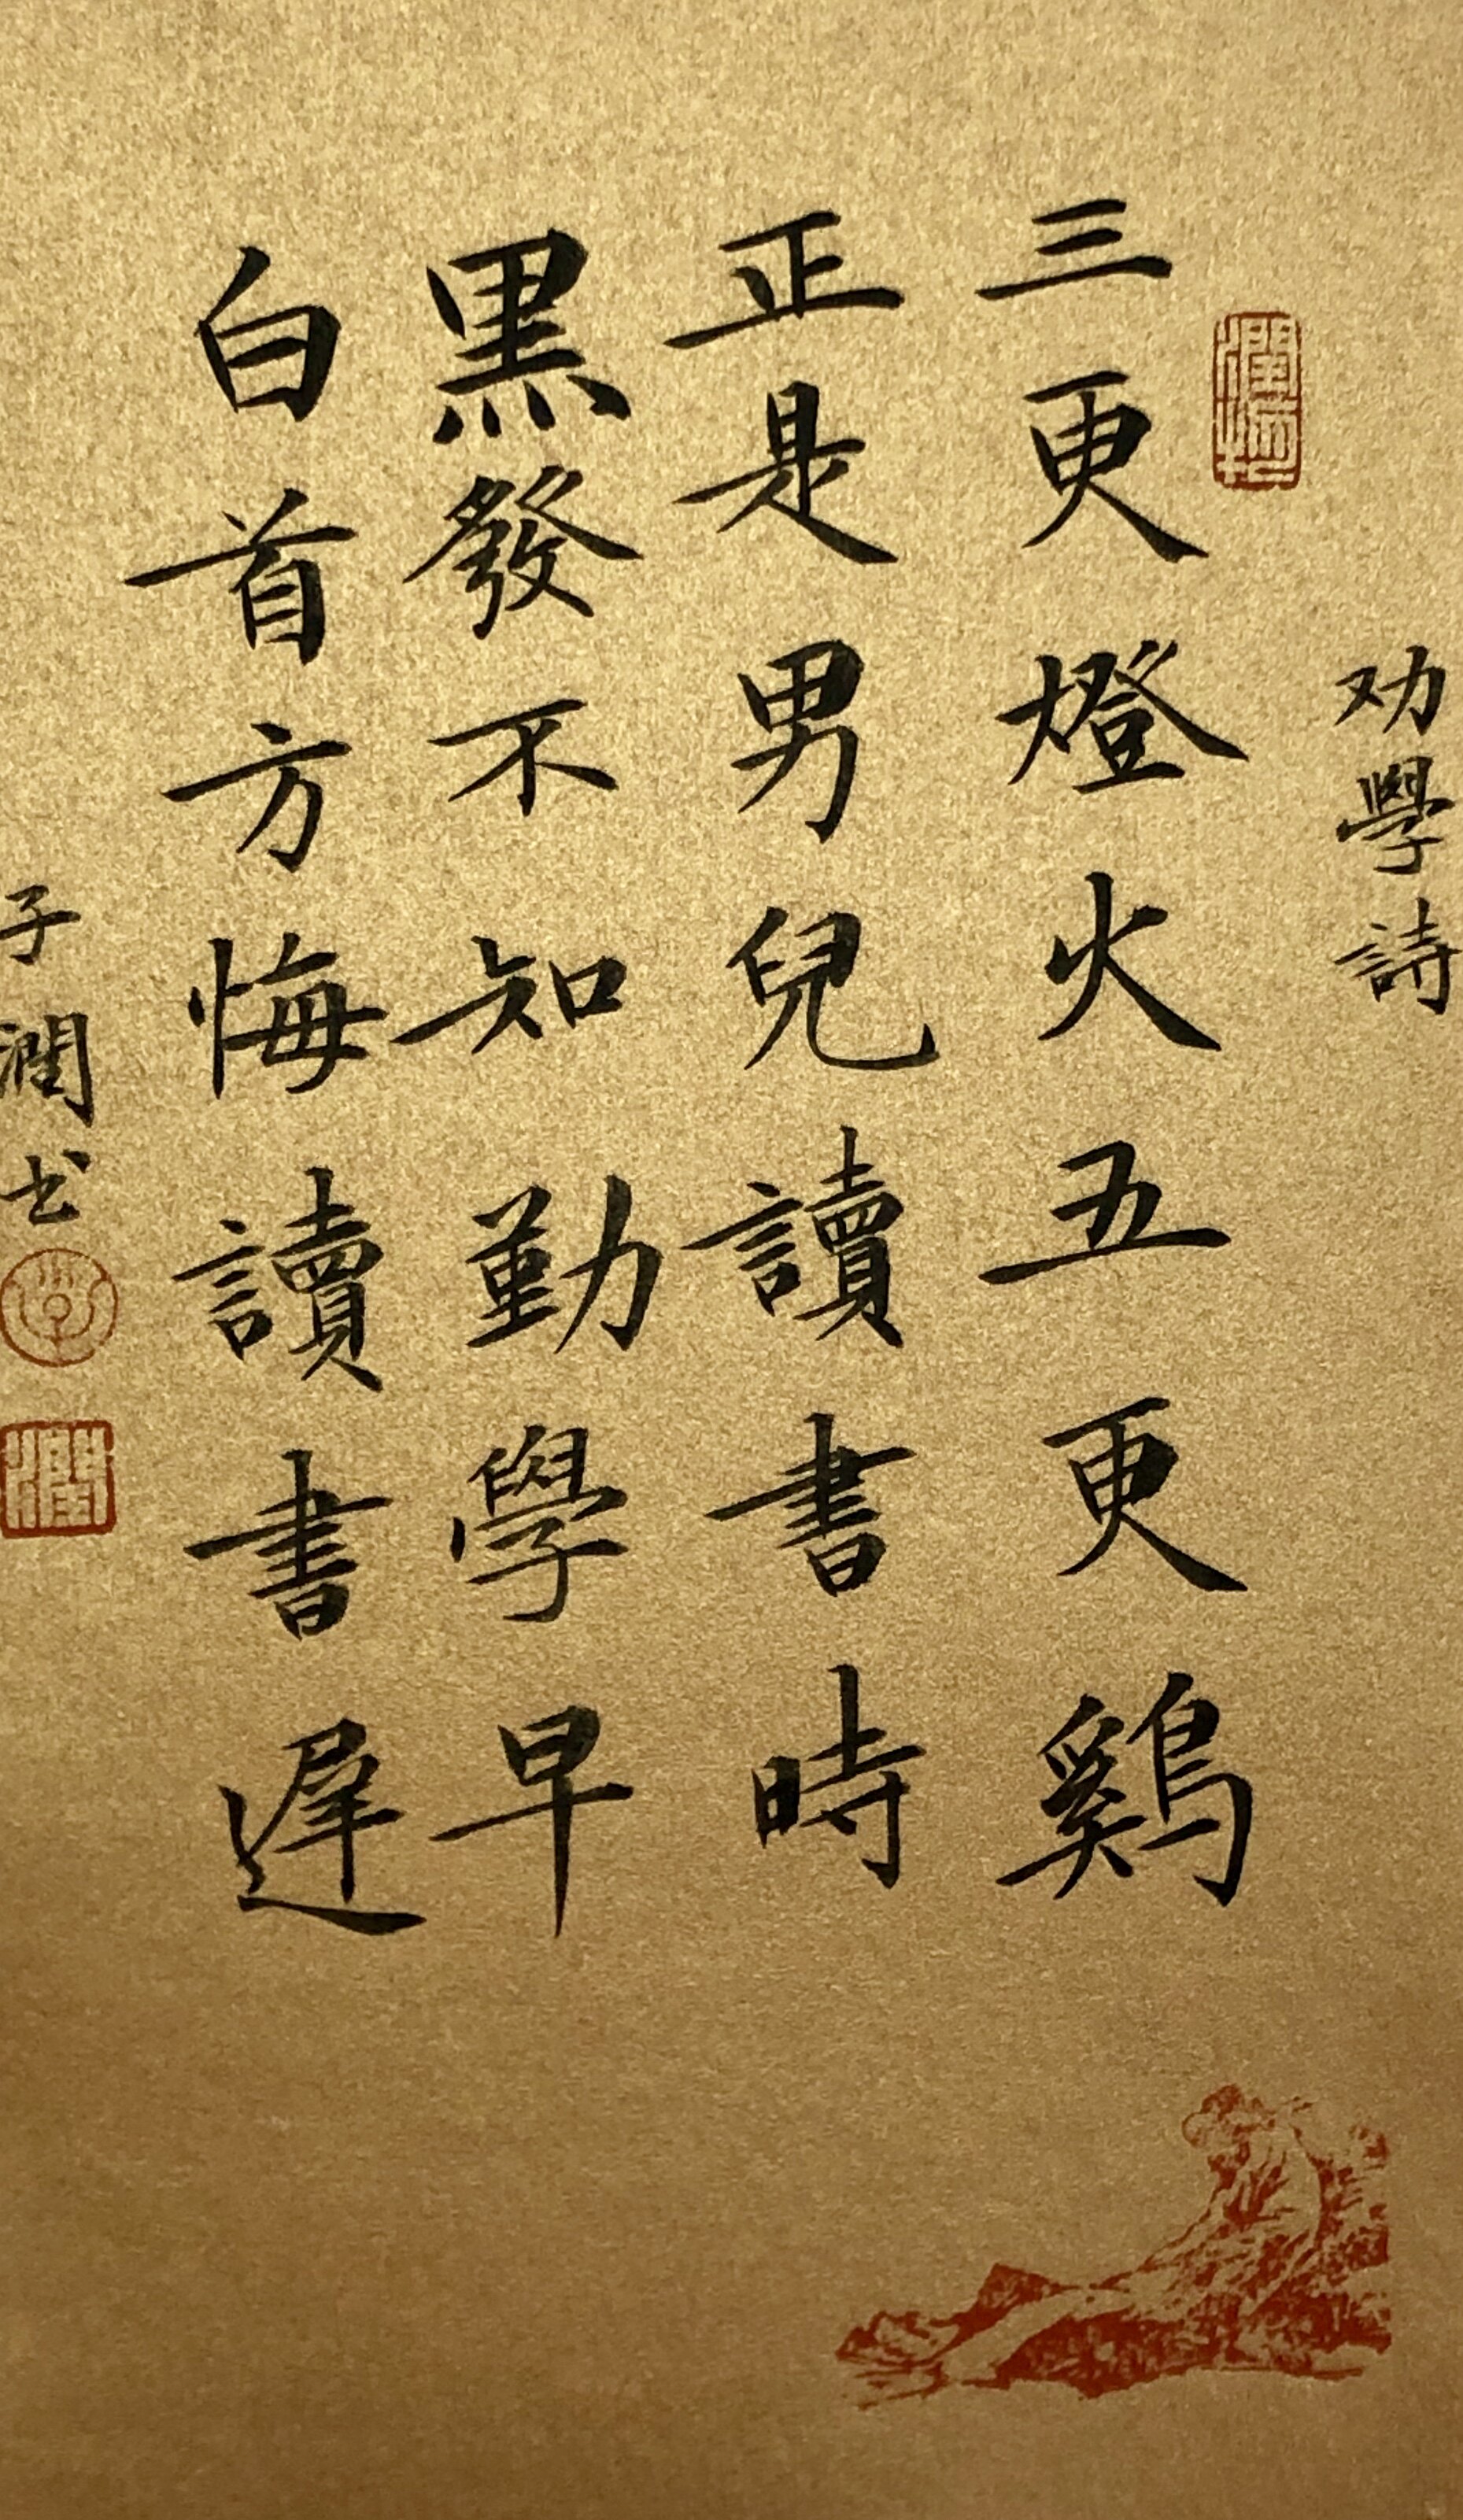 劝學詩
三更燈火五更鷄
正是男兒讀書時
黑發不知勤學早
白首方悔讀書遲
子潤书
潤